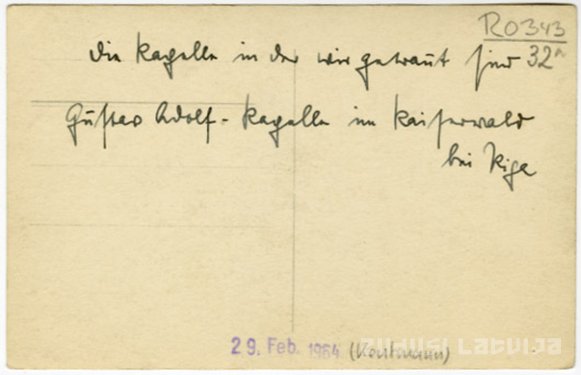 R0343
32a
die Kapelle in der wir getraut sind
Gustav Adolf-Kapelle im Kaiserwald
bei Riga
29. Feb. 1964
ZUDUSI LATVIJA